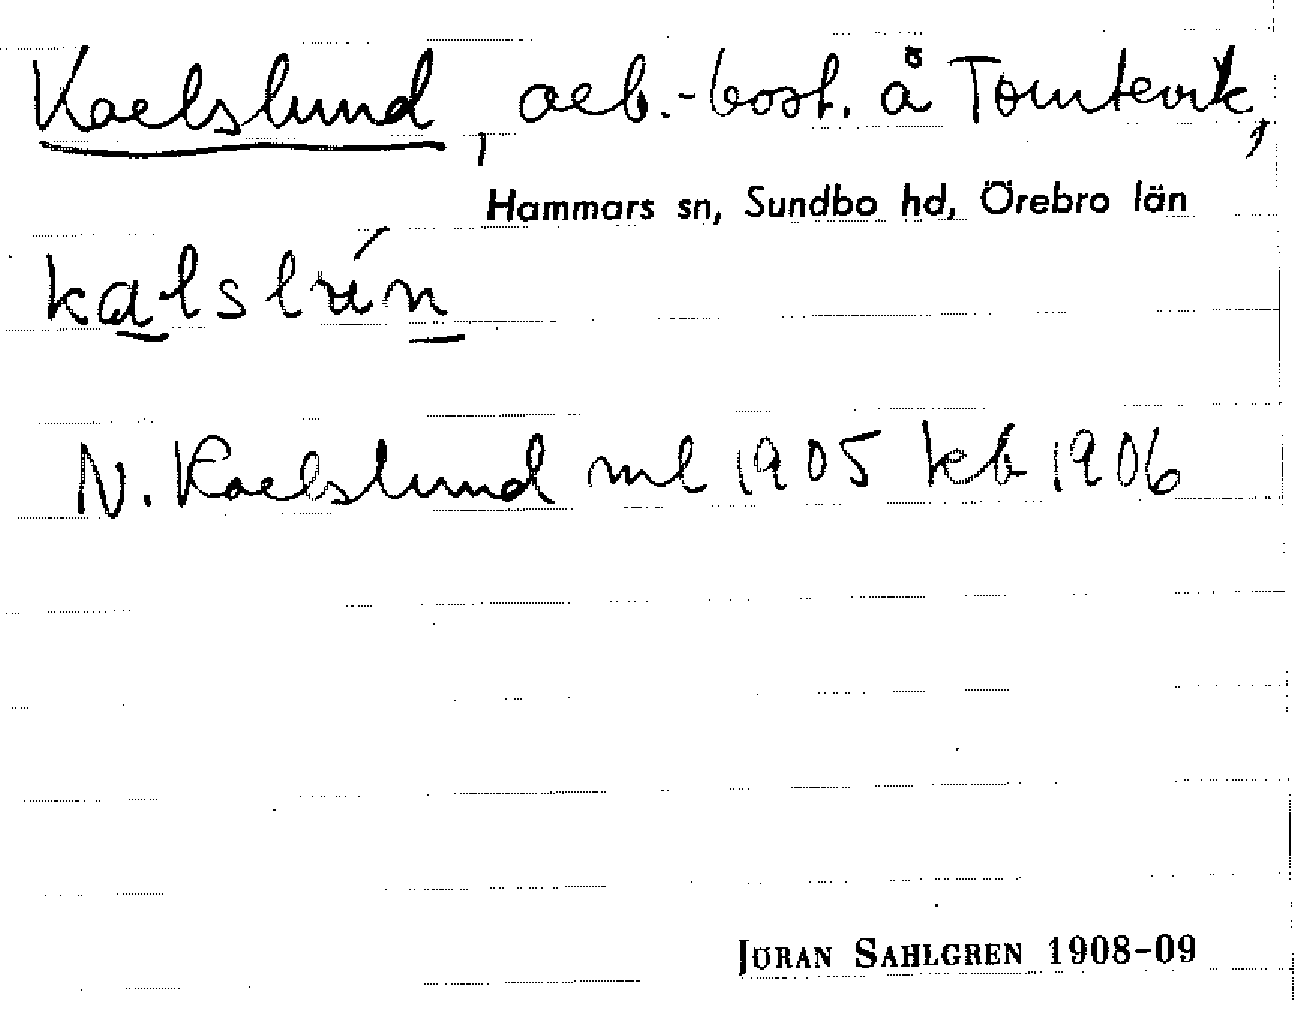 Karlslund, arb.-bost. å Tomtevik,
Hammars sn, Sundbo hd, Örebro län
kalslún
N. Karlslund ml 1905 kb 1906
JÖRAN SAHLGREN 1908-09